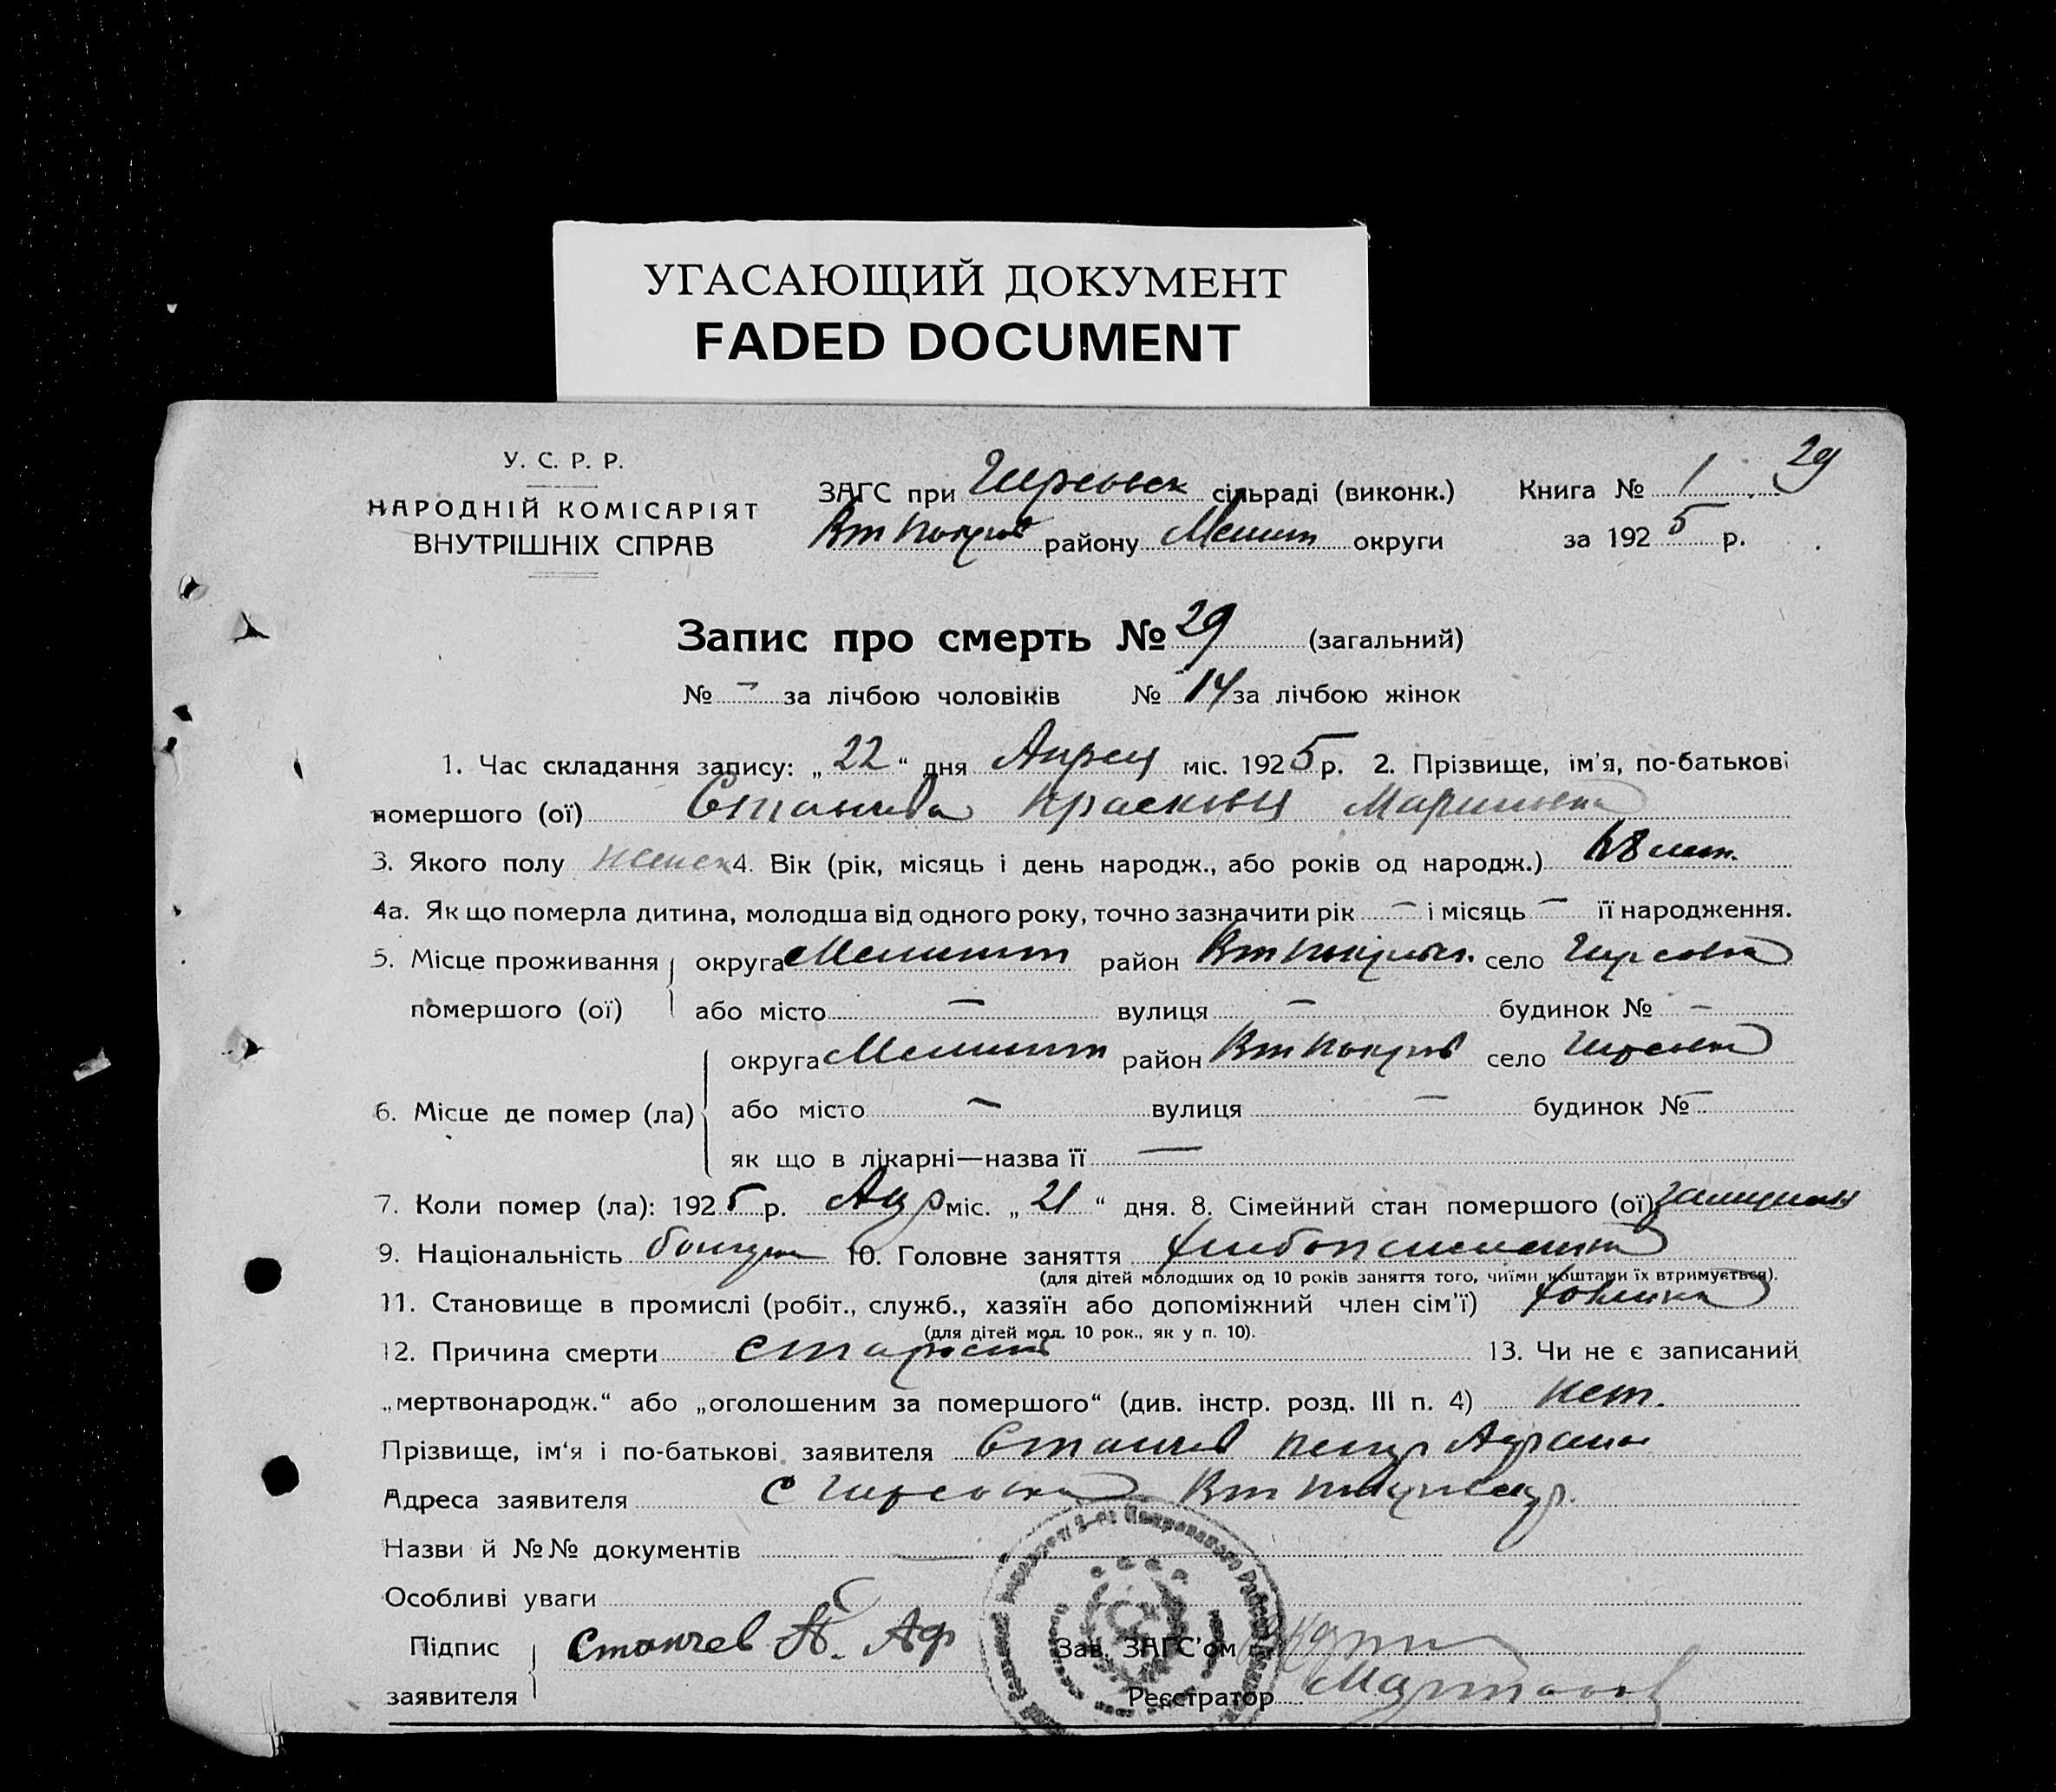 УГАСАЮЩИЙ ДОКУМЕНТ
FADED DOCUMENT
У. С. Р. Р.
НАРОДНІЙ КОМІСАРІЯТ
ВНУТРІШНІХ СПРАВ
ЗАГС при Гирсовск сільраді (виконк.)
Вт Покров району Мелит округи
Книга № 1 29
за 1925 р.
Запис про смерть № 29 (загальний)
№ – за лічбою чоловіків № 14 за лічбою жінок
1. Час складання запису: „22“ дня Апреля міс. 1925 р. 2. Прізвище, ім'я, по-батькові
помершого (ої) Станчева Прасковья
3. Якого полу женск 4. Вік (рік, місяць і день народж., або років од народж.) лет.
4а. Як що померла дитина, молодша від одного року, точно зазначити рік – і місяць – її народження.
5. Місце проживання округа Мелитоп район Вт Покров. село Гирсовка
помершого (ої) або місто – вулиця – будинок № –
округа Мелитоп район Вт Покров село Гирсовка
6. Місце де помер (ла) або місто – вулиця – будинок № –
як що в лікарні—назва її –
7. Коли помер (ла): 1925 р. Апр міс. „21“ дня. 8. Сімейний стан помершого (ої)
9. Національність болгарка 10. Головне заняття хлебопашество
(для дітей молодших од 10 років заняття того, чиїми коштами їх втримується).
11. Становище в промислі (робіт., служб., хазяїн або допоміжний член сім'ї) хозяйка
(для дітей мол. 10 рок., як у п. 10).
12. Причина смерти старость 13. Чи не є записаний
„мертвонародж.“ або „оголошеним за помершого“ (див. інстр. розд. III п. 4) нет.
Прізвище, ім'я і по-батькові заявителя Станчев Петр
Адреса заявителя с Гирсовка Вт Покров
Назви й №№ документів
Особливі уваги
Підпис заявителя Станчев П. Аф
Зав. ЗАГС'ом
Реєстратор